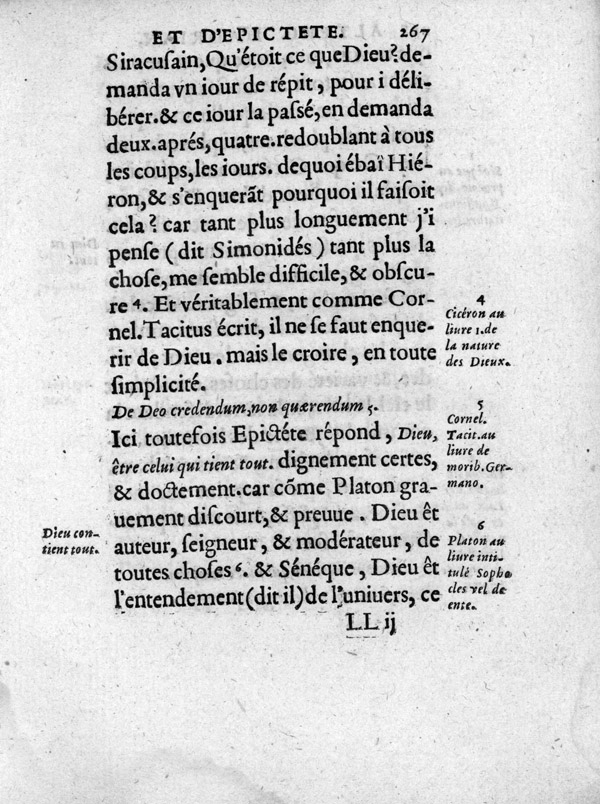 ET D'EPICTETE. 267
Siracusain, Qu'étoit ce que Dieu? de-
manda vn iour de répit, pour i déli-
bérer. & ce iour la passé, en demanda
deux. aprés, quatre. redoublant à tous
les coups, les iours. dequoi ébaï Hié-
ron, & s'enquerãt pourquoi il faisoit
cela? car tant plus longuement j'i
pense (dit Simonidés) tant plus la
chose, me semble difficile, & obscu-
re 4. Et véritablement comme Cor-
nel. Tacitus écrit, il ne se faut enque-
rir de Dieu. mais le croire, en toute
simplicité.
De Deo credendum, non quærendum 5.
Ici toutefois Epictéte répond, Dieu,
être celui qui tient tout. dignement certes,
& doctement. car cõme Platon gra-
uement discourt, & preuue. Dieu êt
auteur, seigneur, & modérateur, de
toutes choses 6. & Sénéque, Dieu êt
l'entendement (dit il) de l'uniuers, ce
LL ij
4
Cicéron au
liure 1. de
la nature
des Dieux.
5
Cornel.
Tacit. au
liure de
morib. Ger-
mano.
6
Platon au
liure inti-
tulé Sopho
cles vel de
ente.
Dieu con-
tient tout.